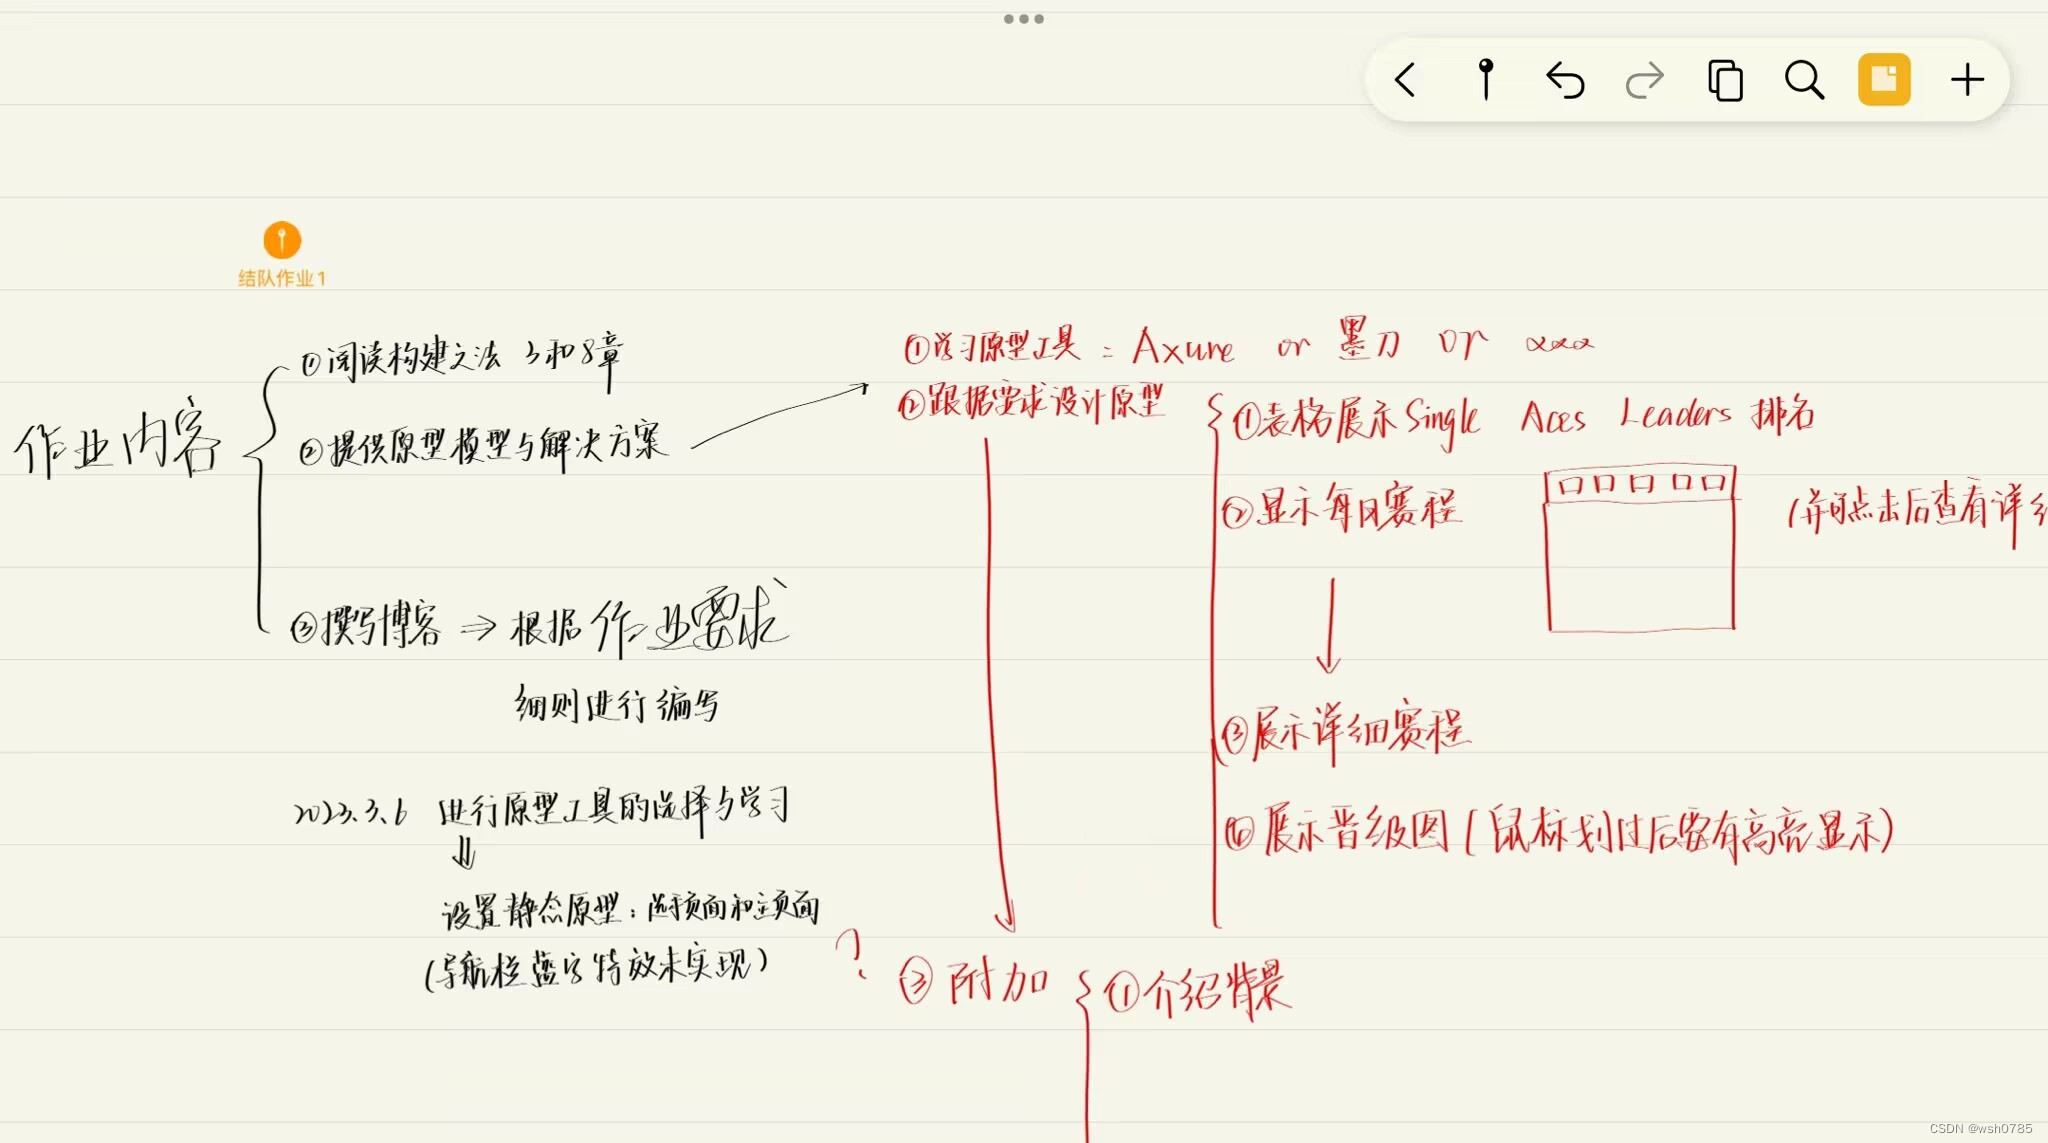 结队作业1
作业内容
①阅读构建之法 3和8章
②提供原型模型与解决方案
③撰写博客 ⇒ 根据作业要求
细则进行编写
2023.3.6 进行原型工具的选择与学习
设置静态原型：选手页面和主页面
(导航栏蓝字特效未实现)
?
①学习原型工具：Axure or 墨刀 or xxx
②跟据要求设计原型
①表格展示Single Aces Leaders 排名
②显示每日赛程
(并可点击后查看详细
③展示详细赛程
④展示晋级图(鼠标划过后要有高亮显示)
③附加
①介绍背景
CSDN @wsh0785